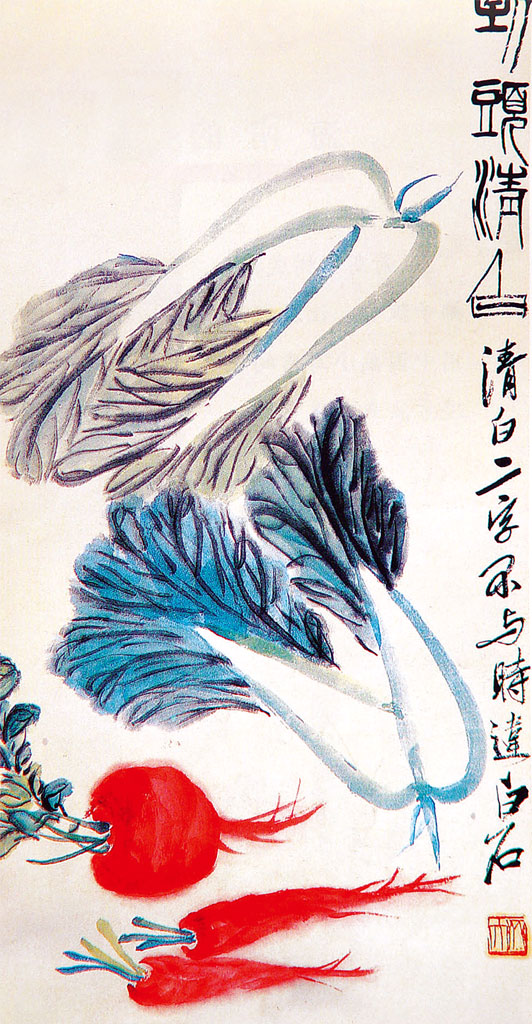 到頭清白 清白二字不与時違白石